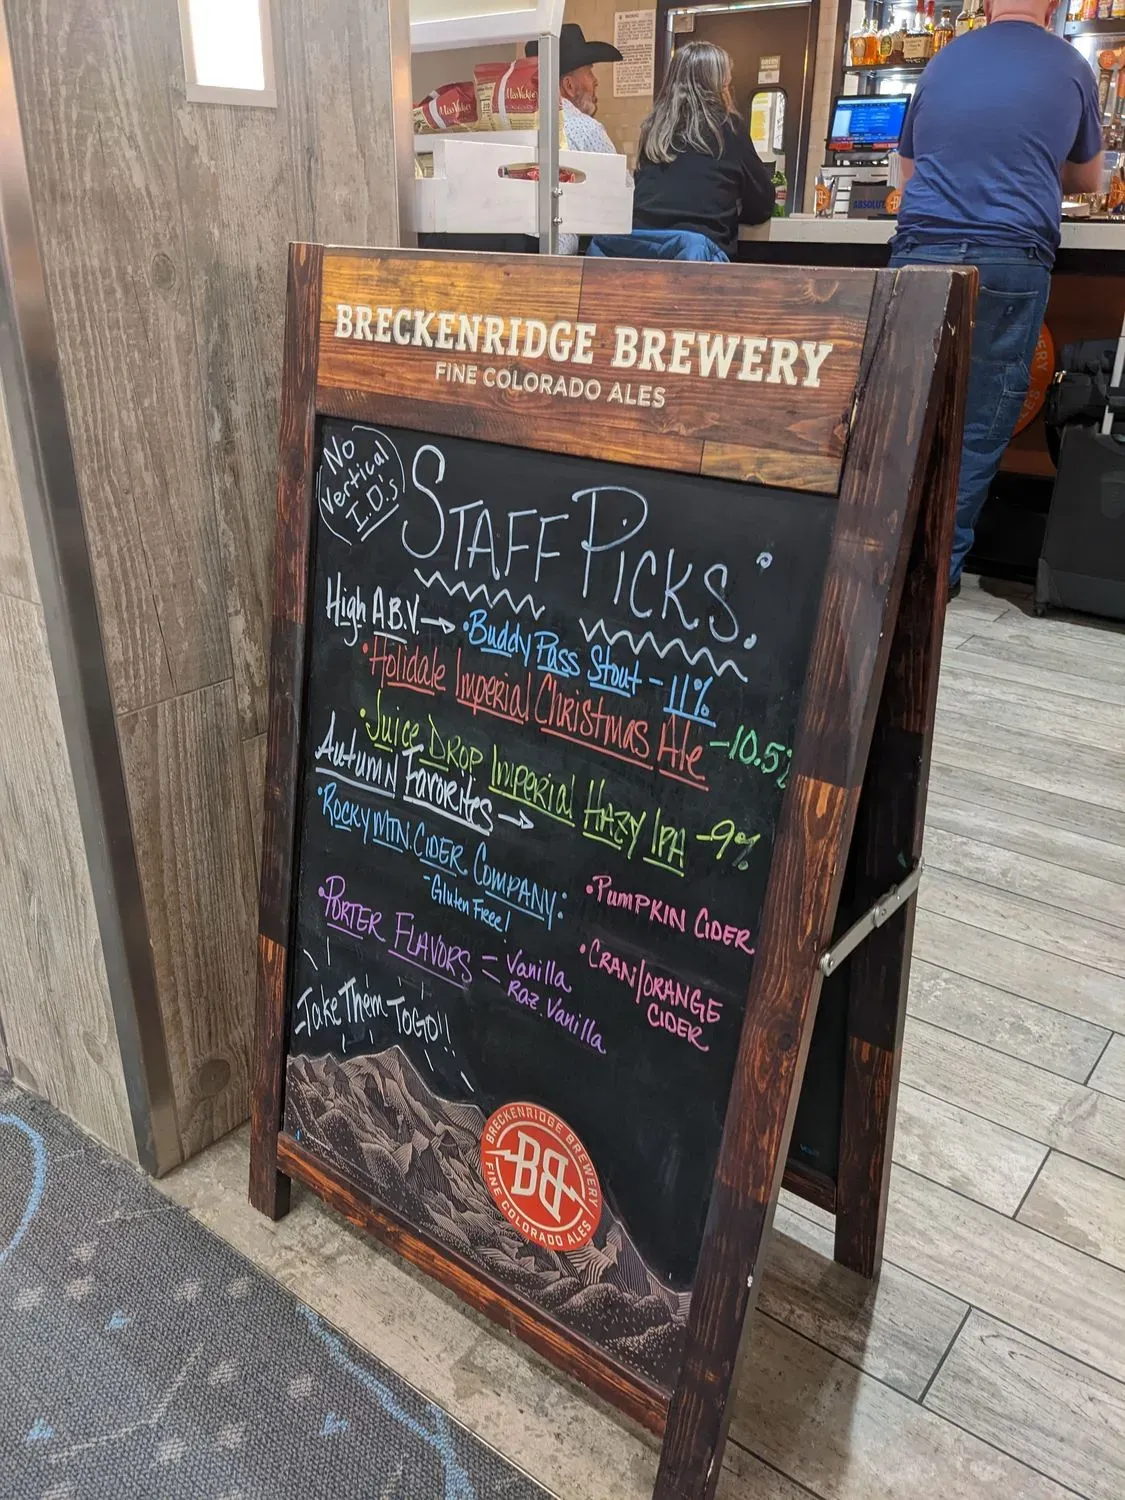 Miss Vickie's
ABSOLUT
BRECKENRIDGE BREWERY
FINE COLORADO ALES
No
Vertical
I.D.s
STAFF PICKS:
High A.B.V. → • Buddy Pass Stout - 11%
• Holidale Imperial Christmas Ale - 10.5%
• Juice Drop Imperial Hazy IPA - 9%
Autumn Favorites →
• Rocky MTN. Cider Company:
- Gluten Free!
• Pumpkin Cider
• Cran/Orange
Cider
• Porter Flavors = Vanilla
Raz. Vanilla
-Take Them ToGo!!
BRECKENRIDGE BREWERY
BB
FINE COLORADO ALES